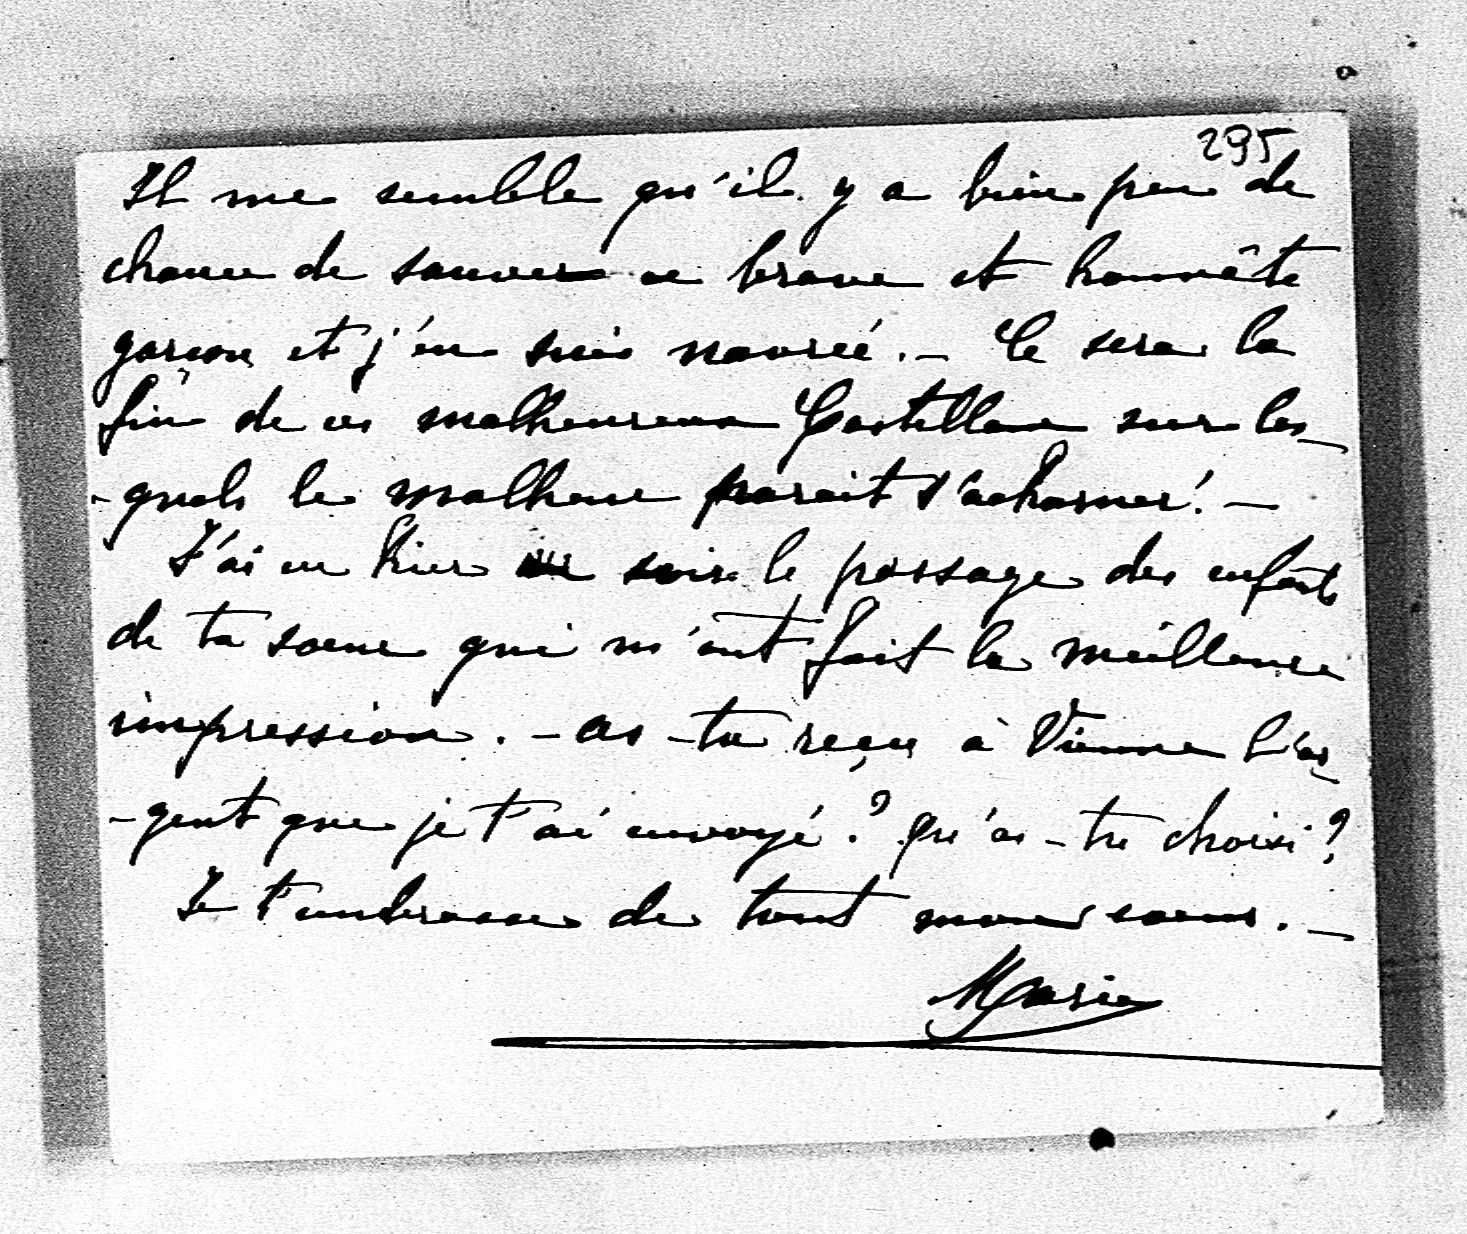 295
Il me semble qu'il y a bien peu de
chance de sauver ce brave et honnête
garçon et j'en suis navrée. — Ce sera la
fin de ces malheureux Castellane sur les-
-quels le malheur parait s'acharner! —
J'ai eu hier soir le passage des enfants
de ta soeur qui m'ont fait la meilleure
impression. — as-tu reçu à Vienne l'ar-
-gent que je t'ai envoyé? qu'as-tu choisi?
Je t'embrasse de tout mon coeur. —
Marie